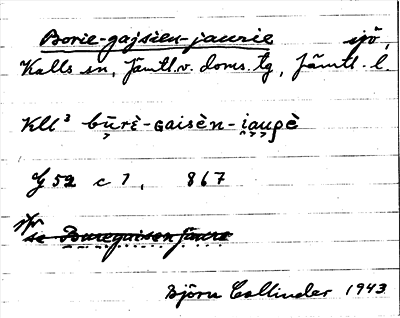 Borie-gajsien-jaurie sjö,
Kalls sn, Jämtl. v. doms. tg, Jämtl. l.
Kll³ bu̬̅rè-gaisèn-i̯au̯ρè
G 52 c 7, 867
jfr
se Buregaisen jaure
Björn Collinder 1943